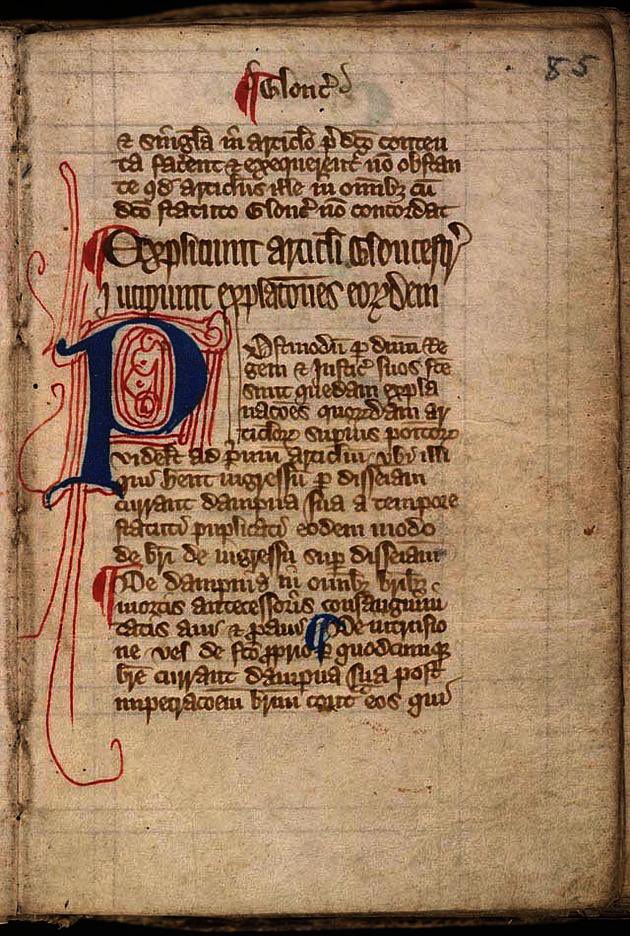 85
¶ Glouc̉
& singl̃a in articl̃o p̃dc̃o conten
ta facent & exequerent̉ nõ obstan
te qđ articlus ille in omĩbȝ cũ
dc̃o statuto Glouc̉ nõ concordat
¶ Expliciunt articl̃i Gloucestr̉
Incipiunt expl̃atõnes eorꝝdem
Postmodũ ꝑ dñm Re
gem & Justic̉ suos fc̃e
sunt quedam expla
nac̃oes quorꝝdam ar
ticlorꝝ superius positorꝝ
videlt̃ ad p̃mũ articlm̃ vbi illi
qui hent̃ ingressũ ꝑ disseiam̃
currant dampna sua a tempore
statuti puplicati eodem modo
de brỉ de ingressũ suꝑ disseiam̃
¶ De dampnis in omĩbȝ bribȝ
mortis antecessoris consanguini
tatis aui & ꝓaui ¶ De intrusio
ne vel de fc̃o ꝓprio ꝑ quodcumqȝ
br̃e currant dampna sua post
impetrac̃oem br̃ium cont̃ eos qui